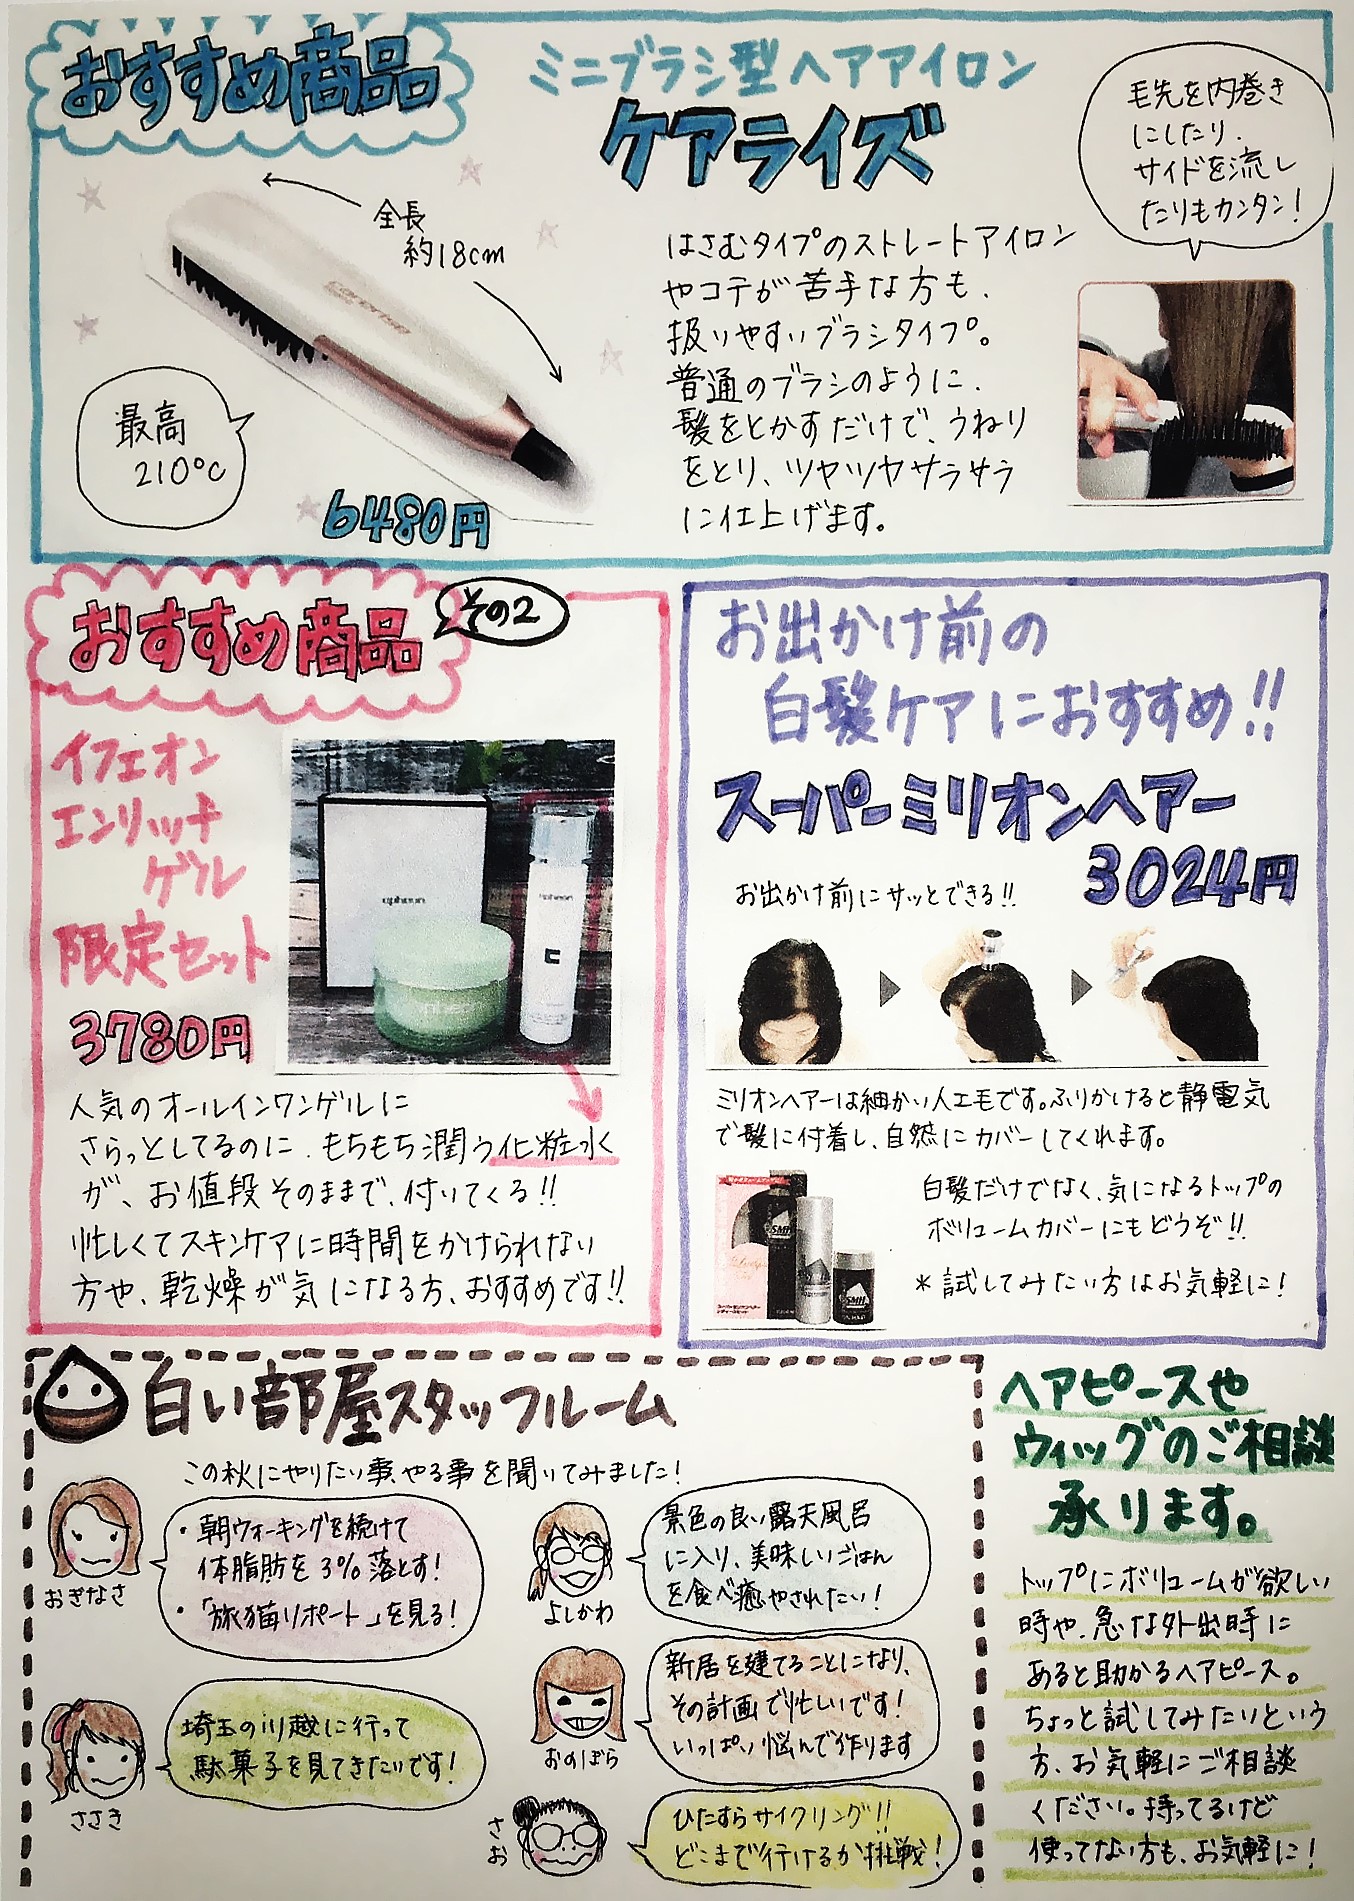 おすすめ商品
ミニブラシ型ヘアアイロン
ケアライズ
毛先を内巻き
にしたり、
サイドを流し
たりもカンタン!
全長
約18cm
carerise
最高
210℃
6480円
はさむタイプのストレートアイロン
やコテが苦手な方も、
扱いやすいブラシタイプ。
普通のブラシのように、
髪をとかすだけで、うねり
をとり、ツヤツヤサラサラ
に仕上げます。
おすすめ商品
その2
イフェオン
エンリッチ
ゲル
限定セット
3780円
epheon
epheon
人気のオールインワンゲルに
さらっとしてるのに、もちもち潤う化粧水
が、お値段そのままで、付いてくる!!
忙しくてスキンケアに時間をかけられない
方や、乾燥が気になる方、おすすめです!!
お出かけ前の
白髪ケアにおすすめ!!
スーパーミリオンヘアー
3024円
お出かけ前にサッとできる!!
ミリオンヘアーは細かい人工毛です。ふりかけると静電気
で髪に付着し、自然にカバーしてくれます。
SMH
SMH
白髪だけでなく、気になるトップの
ボリュームカバーにもどうぞ!!
*試してみたい方はお気軽に!
白い部屋スタッフルーム
この秋にやりたい事、やる事を聞いてみました!
・朝ウォーキングを続けて
体脂肪を3%落とす!
・「旅猫リポート」を見る!
おぎなさ
景色の良い露天風呂
に入り、美味しいごはん
を食べ癒やされたい!
よしかわ
新居を建てることになり、
その計画で忙しいです!
いっぱい悩んで作ります
おのぼら
埼玉の川越に行って
駄菓子を見てきたいです!
ささき
ひたすらサイクリング!!
どこまで行けるか挑戦!
さお
ヘアピースや
ウィッグのご相談
承ります。
トップにボリュームが欲しい
時や、急な外出時に
あると助かるヘアピース。
ちょっと試してみたいという
方、お気軽にご相談
ください。持ってるけど
使ってない方も、お気軽に!